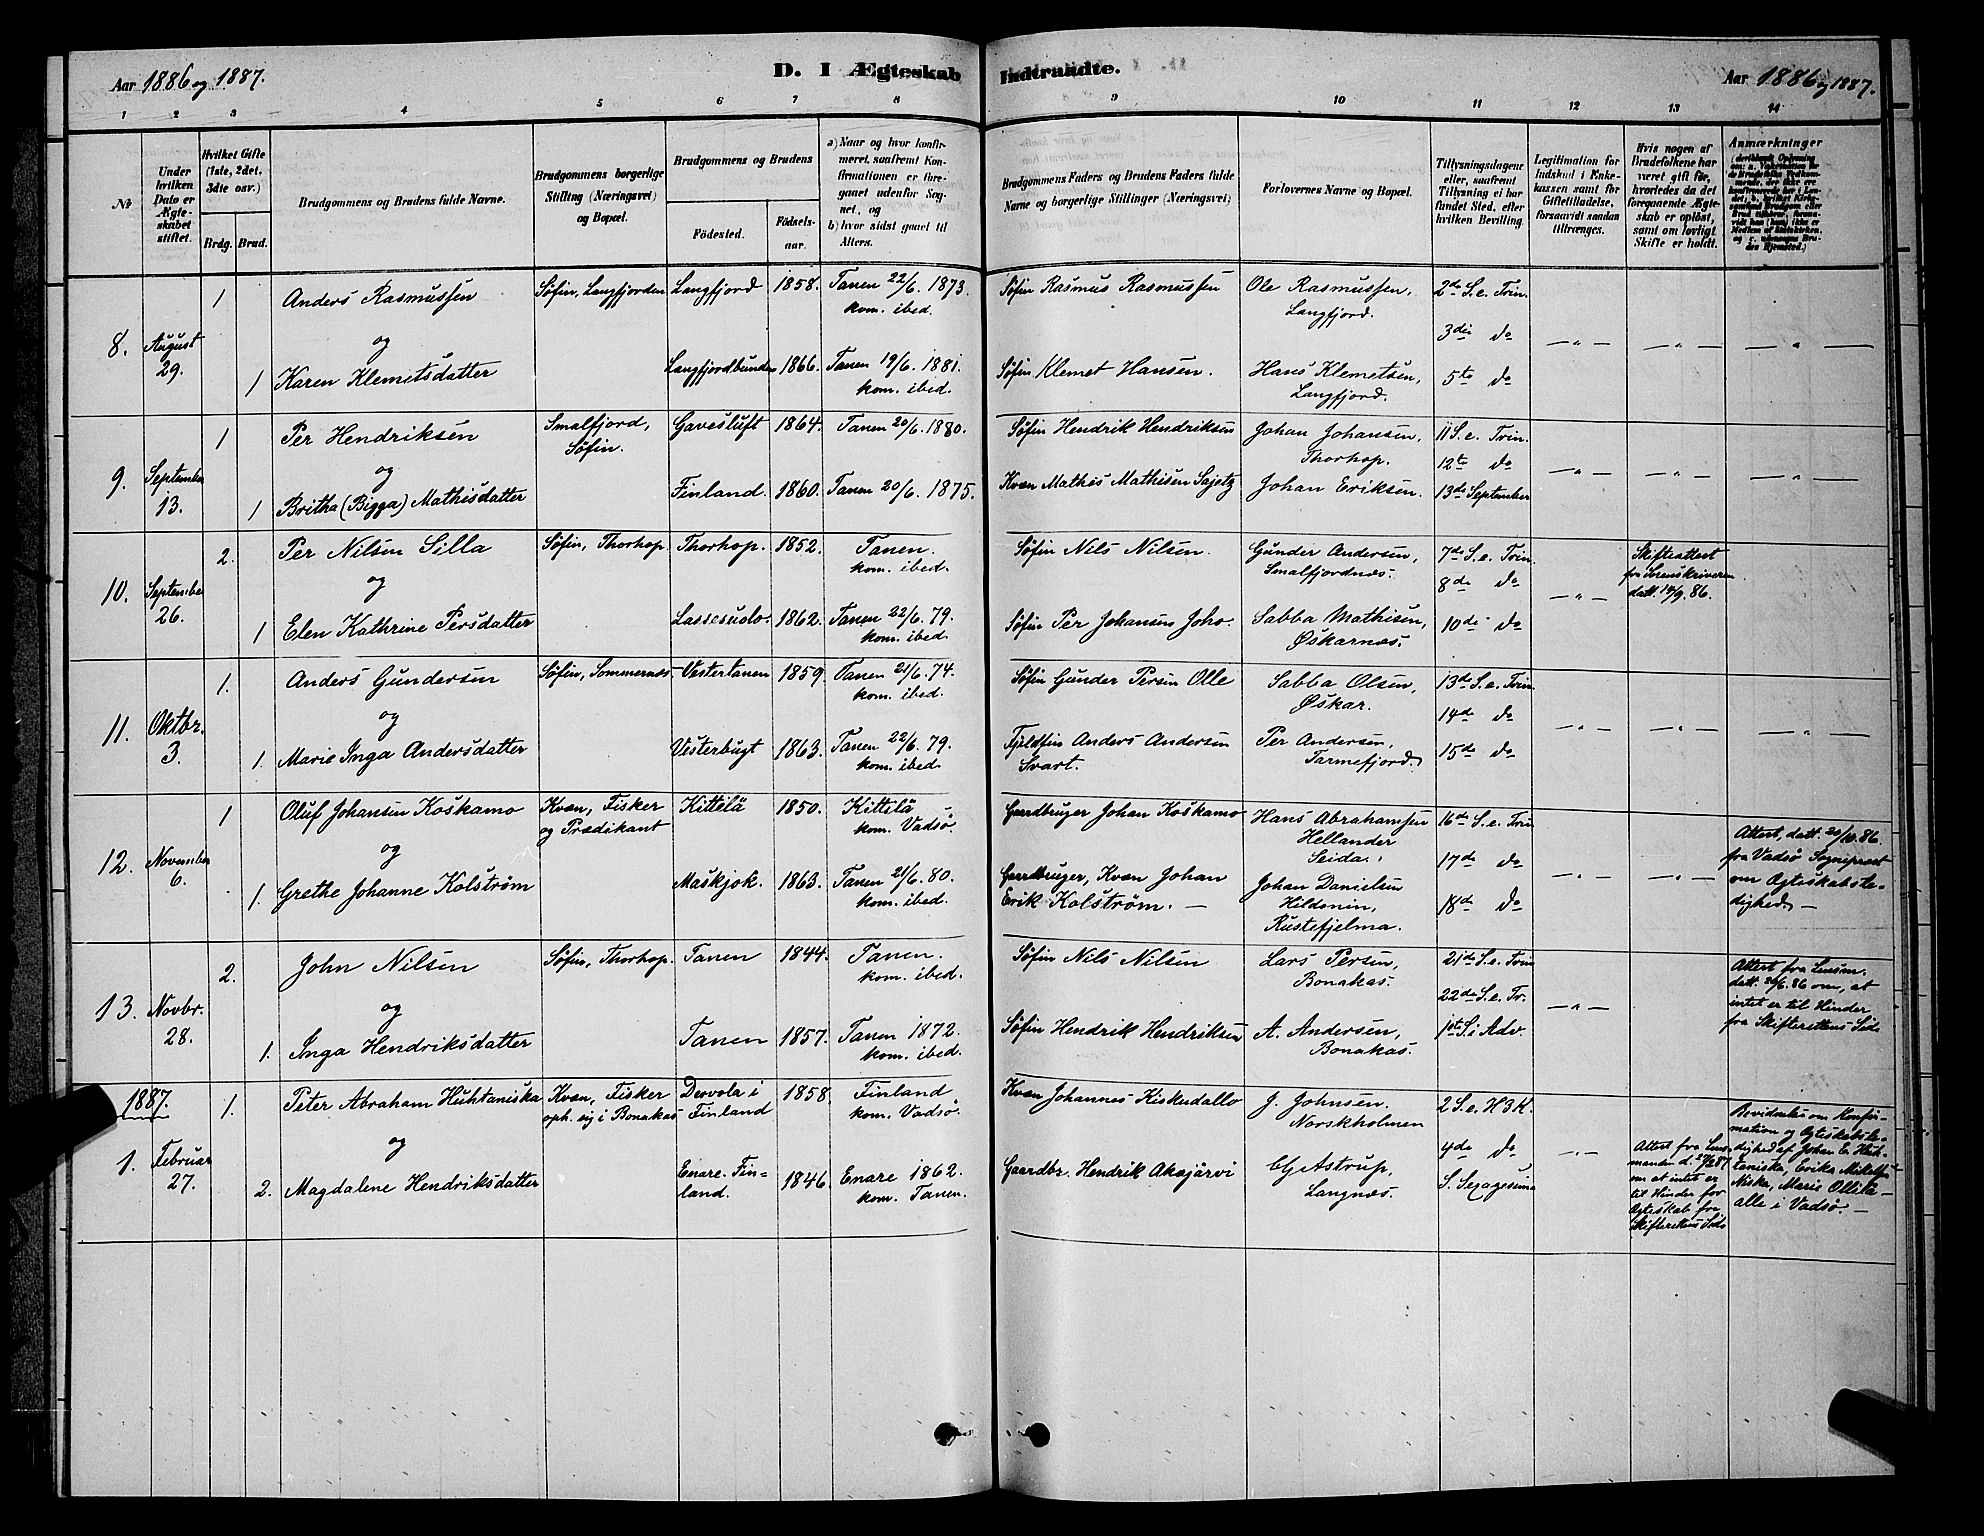 Aar 1886 og 1887.
D. I Ægteskab Indtraadte.
Aar 1886 og 1887.
1 2 3 4 5 6 7 8 9 10 11 12 13 14
No
Under hvilken Dato er Ægteskabet stiftet.
Hvilket Gifte (1ste, 2det, 3die osv.)
Brdg. Brud.
Brudgommens og Brudens fulde Navne.
Brudgommens borgerlige Stilling (Næringsvei) og Bopæl.
Brudgommens og Brudens
Fødested.
Fødselsaar.
a) Naar og hvor konfirmeret, saafremt Konfirmationen er foregaaet udenfor Sognet, og
b) hvor sidst gaaet til Alters.
Brudgommens Faders og Brudens Faders fulde Navne og borgerlige Stillinger (Næringsvei)
Forlovernes Navne og Bopæl.
Tillysningsdagene eller, saafremt Tillysning ei har fundet Sted, efter hvilken Bevilling.
Legitimation for Indskud i Enkekassen samt for Giftetilladelse, forsaavidt saadan tiltrænges.
Hvis nogen af Brudefolkene har været gift før, hvorledes da det foregaaende Ægteskab er opløst, samt om lovligt Skifte er holdt.
Anmærkninger
8. August 29.
1 Anders Rasmussen
Søfin, Langfjorden Langfjord 1858. Tanen 22/6. 1873. kom. ibed.
Søfin Rasmus Rasmussen Ole Rasmussen, Langfjord. 2de S. e. Trin.
og
3die do
1 Karen Klemitsdatter
Langfjordbunden 1866. Tanen 19/6. 1881. kom. ibed.
Søfin Klemet Hansen. Hans Klemetsen, Langfjord. 5te do
9. September 13.
1 Per Hendriksen
Smalfjord, Søfin. Gavesluft 1864. Tanen 20/6. 1880.
Søfin Hendrik Hendriksen Johan Johansen, Thorhop. 11 S. e. Trin.
og
12te do
1 Britha (Bigga) Mathisdatter
Finland. 1860. Tanen 20/6. 1875.
Kvæn Mathis Mathisen Sajetz Johan Eriksen. 13de September
10. September 26.
2. Per Nilsen Silla
Søfin, Thorhop Thorhop. 1852. Tanen. kom. ibed.
Søfin Nils Nilsen. Gunder Andersen, Smalfjordnæs. 7de S. e. Trin.
Skifteattest fra Sorenskriveren datt. 19/9. 86.
og
8de do
1 Elen Kathrine Persdatter
Lassesudlo. 1862. Tanen 22/6. 79. kom. ibed.
Søfin Per Johansen Joho. Sabba Mathisen, Øskarnæs. 10de do
11. Oktbr. 3.
1. Anders Gundersen
Søfin, Sommernæs Vestertanen 1859 Tanen 21/6. 74. kom. ibed.
Søfin Gunder Persen Olle Sabba Olsen, Øskar. 13de S. e. Trin.
og
14de do
1. Marie Inga Andersdatter
Vesterbugt 1863. Tanen 22/6. 79. kom. ibed.
Fjeldfin Anders Andersen Svart. Per Andersen, Tarmefjord. 15de do
12. November 6.
1 Oluf Johansen Koskamo
Kvæn, Fisker og Prædikant Kittelä 1850. Kittilä kom. Vadsø.
Gaardbruger Johan Koskamo Hans Abrahamsen Hellander Seida. 16de S. e. Trin
Attest, datt. 20/10. 86. fra Vadsø Sognepræst om Ægteskabsledighed. —
og
17de do
1. Grethe Johanne Kolstrøm
Maskjok. 1863. Tanen 21/6. 80. kom. ibed.
Gaardbruger, Kvæn Johan Erik Kolstrøm. — Johan Danielsen Hildonin, Rustefjelma. 18de do
13. Novbr. 28.
2. John Nilsen
Søfin, Thorhop. Tanen 1844. Tanen. kom. ibed.
Søfin Nils Nilsen Lars Persen, Bonakas. 21de S. e. Trin
Attest fra Lensm. datt. 26/6. 86 om, at intet er til Hinder fra Skifterettens Side
og
22de S. e. Tr.
1. Inga Hendriksdatter
Tanen 1857. Tanen 1872. kom. ibed.
Søfin Hendrik Hendriksen A. Andersen, Bonakas. 1ste S. i Adv.
1887.
1. Februar 27.
1. Peter Abraham Huhtaniska
Kvæn, Fisker oph. sig i Bonakas Dervola i Finland 1858. Finland kom. Vadsø.
Kvæn Johannes Kiskudallo J. Johnsen. Norskholmen 2 S. e. H3K.
Attest fra Lensmanden d. 27/2 87 om at intet er til Hinder for Ægteskab fra Skifterettens Side
Bevidnelse om Konfirmation og Ægteskabsledighed af Johan E. Huhtaniska, Erika Mikelsen Niska, Marie Ollila — alle i Vadsø. —
og
4de do
2. Magdalene Hendriksdatter
Enare. Finland. 1846. Enare 1862. kom. Tanen.
Gaardbr. Hendrik Akajärvi Astrup, Langnæs. S. Sexagesima